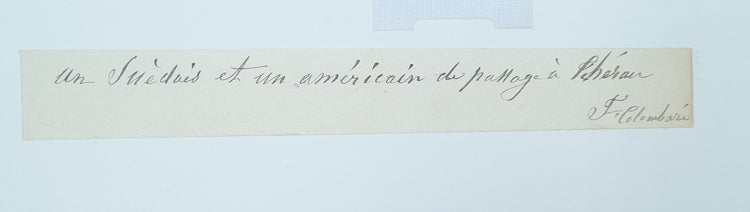 un Suèdois et un américain de passage à Théran
F. Colombari